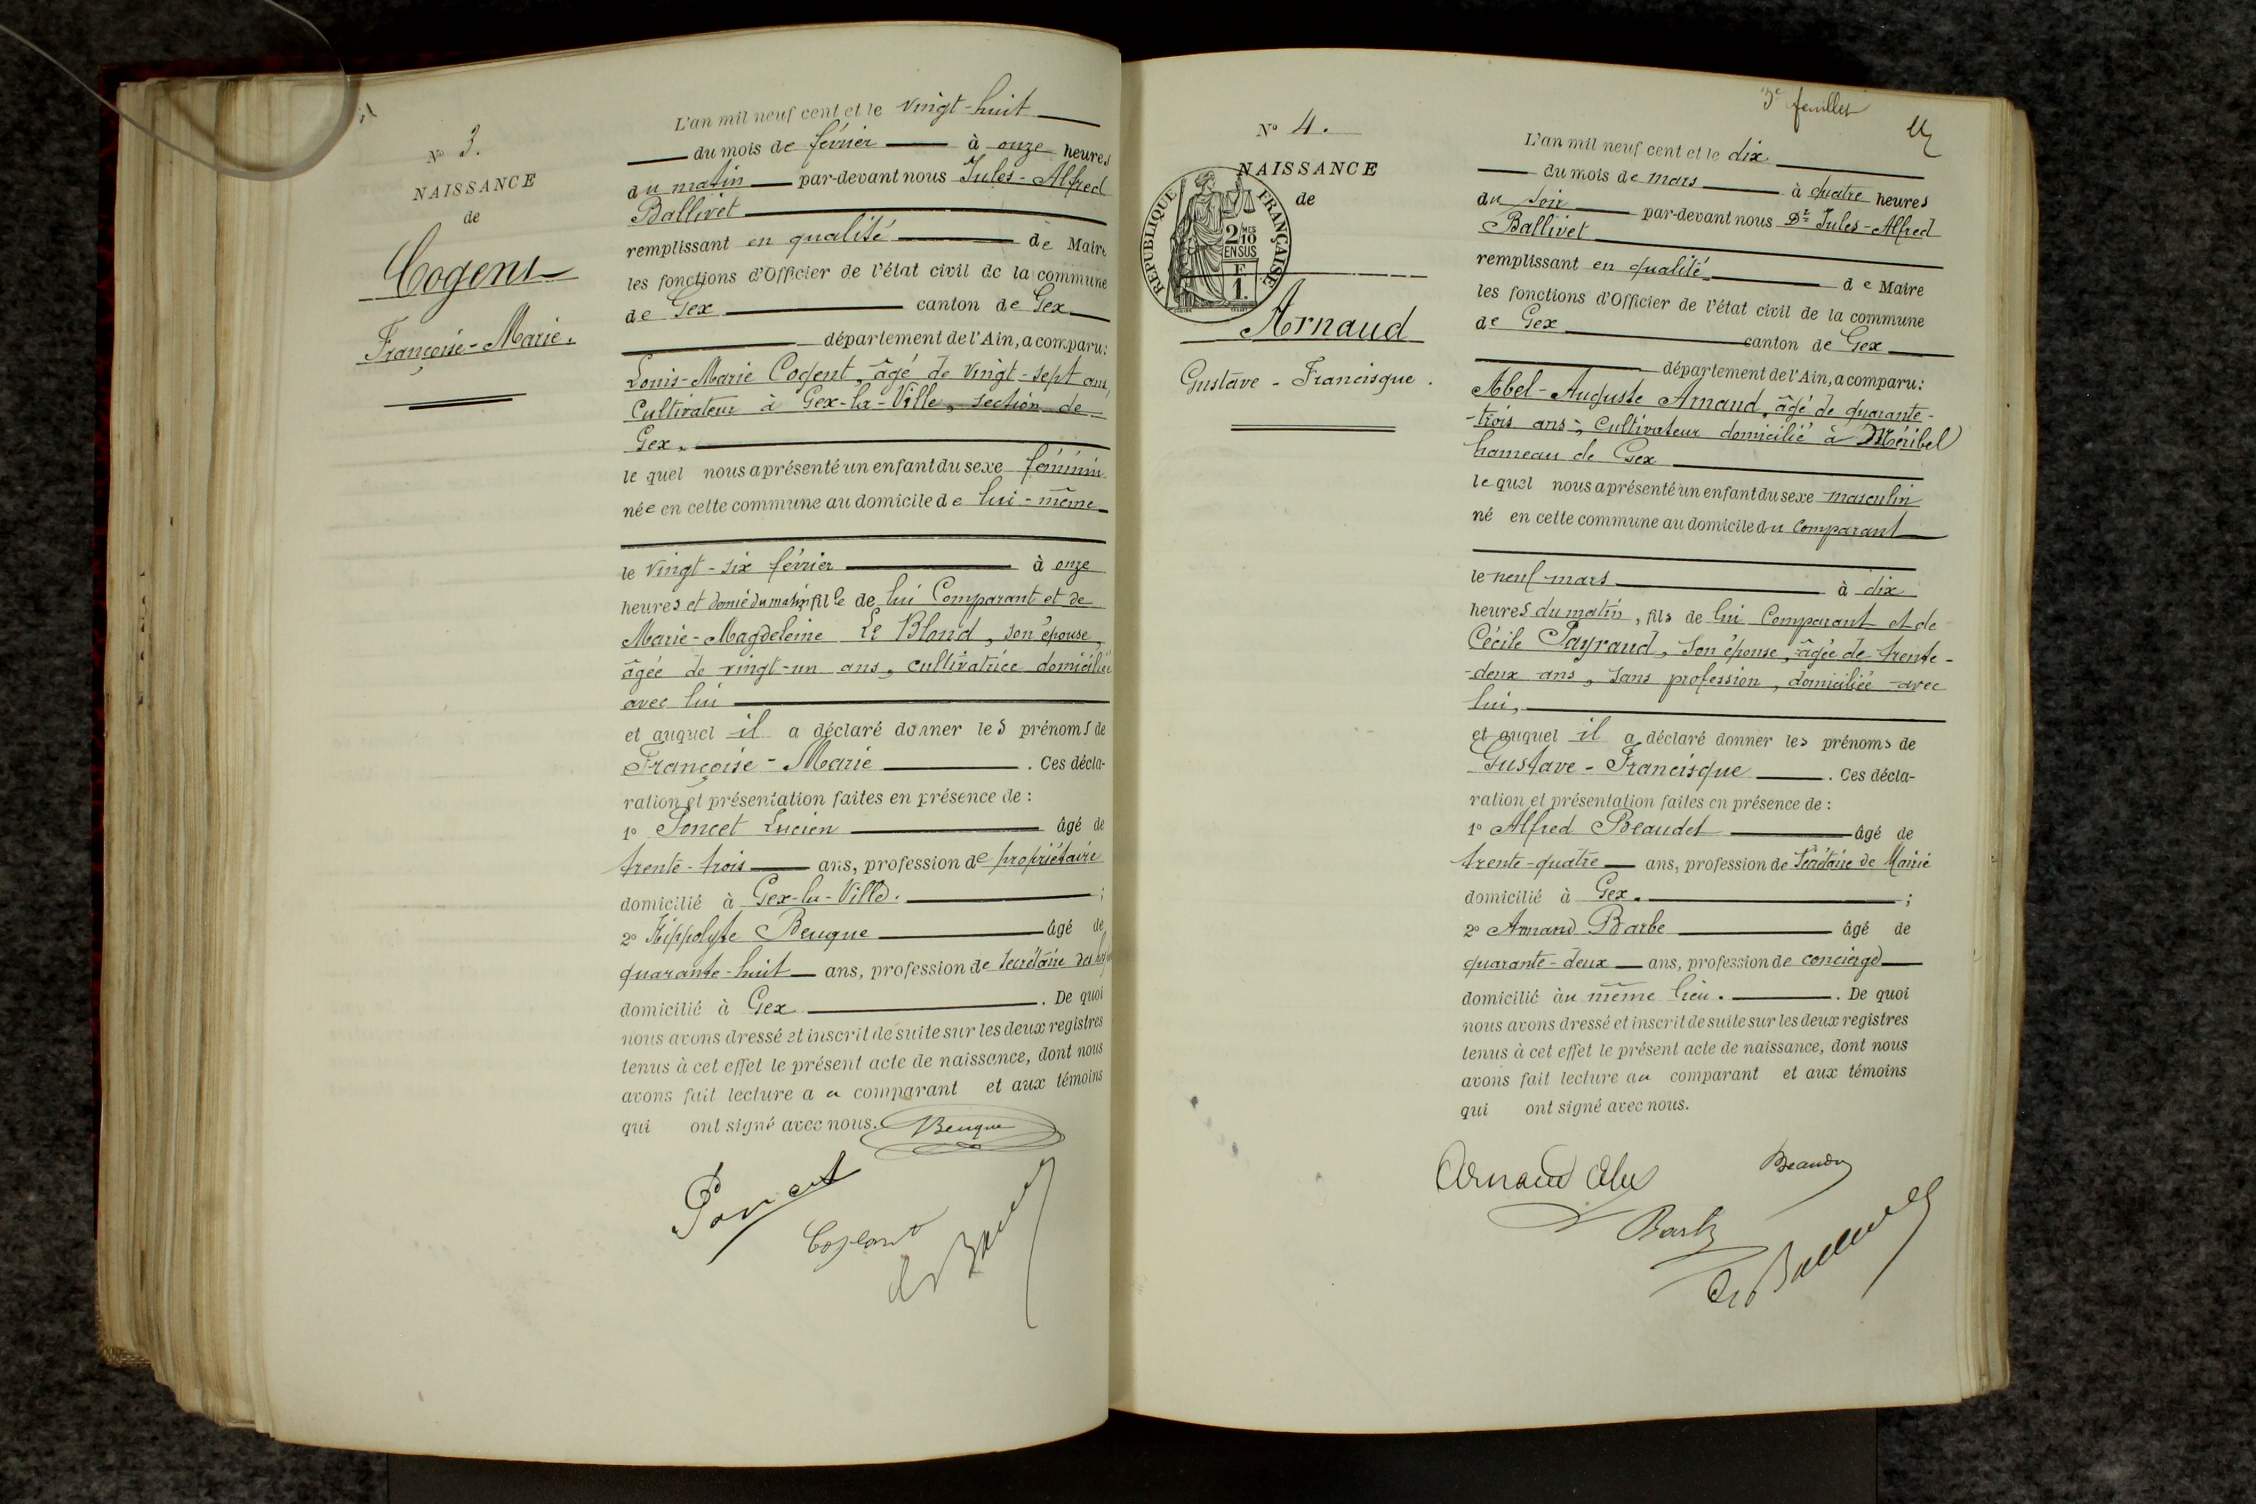 N° 3.
NAISSANCE
de
Cogent
Françoise-Marie.
L'an mil neuf cent et le vingt-huit
du mois de février à onze heures
du matin par-devant nous Jules-Alfred
Ballivet
remplissant en qualité de Maire
les fonctions d'Officier de l'état civil de la commune
de Gex canton de Gex
département de l'Ain, a comparu:
Louis-Marie Cogent, âgé de vingt-sept ans,
Cultivateur à Gex-la-Ville, section de
Gex.
le quel nous a présenté un enfant du sexe féminin
née en cette commune au domicile de lui-même
le vingt-six février à onze
heures et demie du matin fille de lui Comparant et de
Marie-Magdeleine Le Blond, son épouse,
âgée de vingt-un ans, cultivatrice domiciliée
avec lui
et auquel il a déclaré donner les prénoms de
Françoise-Marie. Ces décla-
ration et présentation faites en présence de :
1° Poncet Lucien âgé de
trente-trois ans, profession de propriétaire
domicilié à Gex-la-Ville. ;
2° Hippolyte Beuque âgé de
quarante-huit ans, profession de Secrétaire des
domicilié à Gex. De quoi
nous avons dressé et inscrit de suite sur les deux registres
tenus à cet effet le présent acte de naissance, dont nous
avons fait lecture au comparant et aux témoins
qui ont signé avec nous. Beuque
Poncet
Cogent
3e feuillet
N° 4.
NAISSANCE
de
REPUBLIQUE FRANÇAISE
2/10 MES
EN SUS
F
1.
Arnaud
Gustave-Francisque.
L'an mil neuf cent et le dix
du mois de mars à quatre heures
du soir par-devant nous Dr Jules-Alfred
Ballivet
remplissant en qualité de Maire
les fonctions d'Officier de l'état civil de la commune
de Gex canton de Gex
département de l'Ain, a comparu:
Abel-Auguste Arnaud, âgé de quarante-
-trois ans, Cultivateur domicilié à Méribel
hameau de Gex
le quel nous a présenté un enfant du sexe masculin
né en cette commune au domicile du comparant
le neuf mars à dix
heures du matin, fils de lui Comparant et de
Cécile Payraud, son épouse, âgée de trente-
-deux ans, sans profession, domiciliée avec
lui,
et auquel il a déclaré donner les prénoms de
Gustave-Francisque. Ces décla-
ration et présentation faites en présence de :
1° Alfred Beaudet âgé de
trente-quatre ans, profession de Secrétaire de Mairie
domicilié à Gex. ;
2° Armand Barbe âgé de
quarante-deux ans, profession de concierge
domicilié au même lieu. De quoi
nous avons dressé et inscrit de suite sur les deux registres
tenus à cet effet le présent acte de naissance, dont nous
avons fait lecture au comparant et aux témoins
qui ont signé avec nous.
Arnaud Abel
Barbe
Dr Ballivet